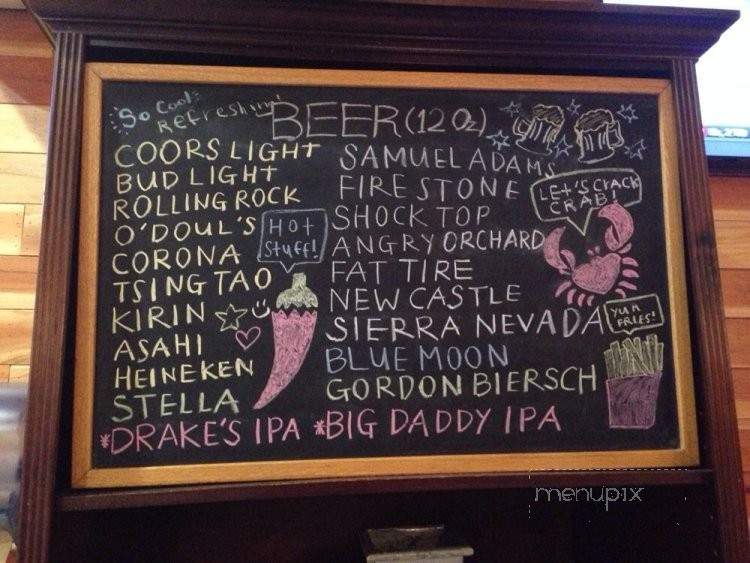 So Cool
Refreshing!
BEER (12 Oz)
COORS LIGHT
BUD LIGHT
ROLLING ROCK
O'DOUL'S
CORONA
TSING TAO
KIRIN
ASAHI
HEINEKEN
STELLA
*DRAKE'S IPA
Hot
Stuff!
SAMUEL ADAMS
FIRE STONE
SHOCK TOP
ANGRY ORCHARD
FAT TIRE
NEW CASTLE
SIERRA NEVADA
BLUE MOON
GORDON BIERSCH
*BIG DADDY IPA
LET'S CRACK
CRAB!
YUM
FRIES!
menupix